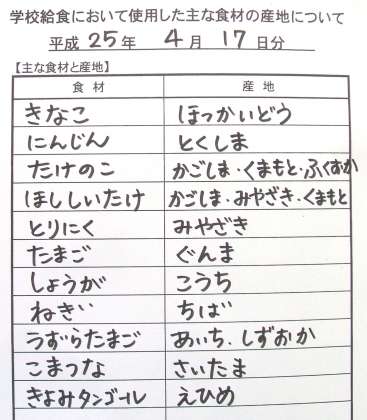 学校給食において使用した主な食材の産地について
平成 25 年 4 月 17 日分
【主な食材と産地】
食材 産地
きなこ ほっかいどう
にんじん とくしま
たけのこ かごしま・くまもと・ふくおか
ほししいたけ かごしま・みやざき・くまもと
とりにく みやざき
たまご ぐんま
しょうが こうち
ねぎ ちば
うずらたまご あいち、しずおか
こまつな さいたま
きよみタンゴール えひめ